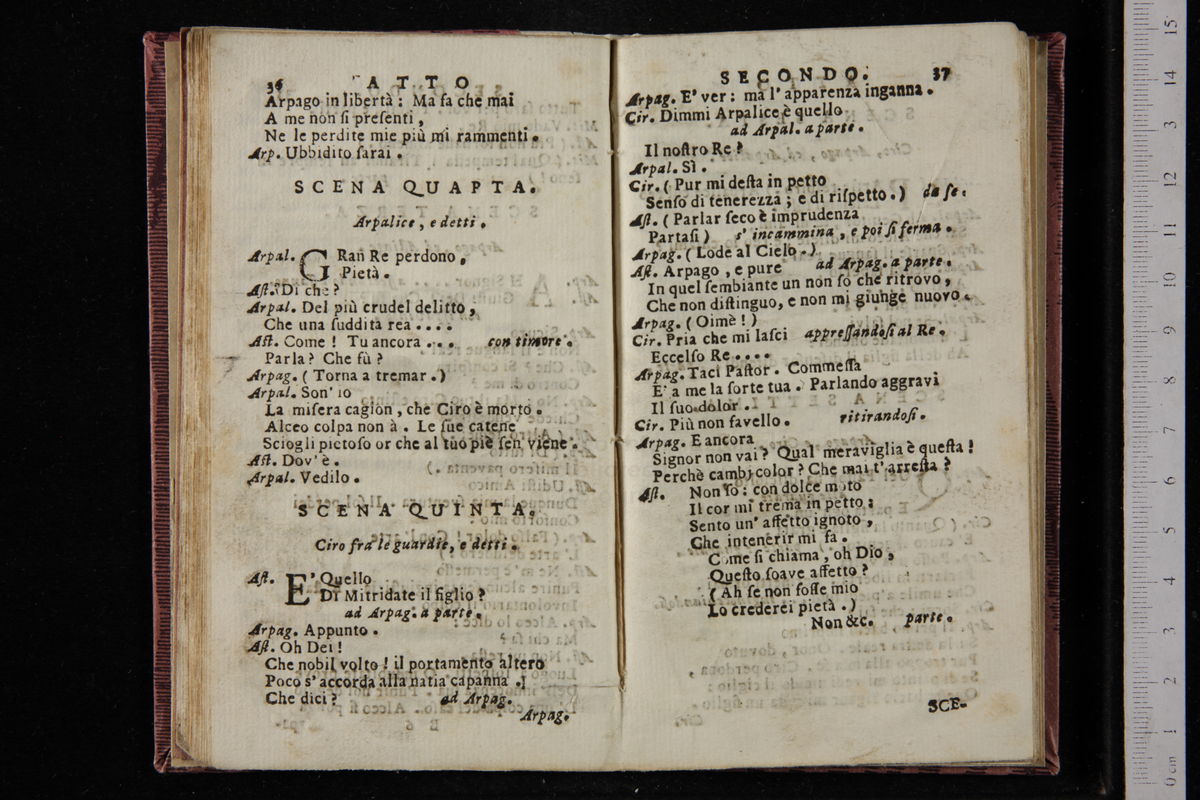 36 ATTO
Arpago in libertà : Ma fa che mai
A me non ſi preſenti ,
Ne le perdite mie più mi rammenti .
Arp. Ubbidito ſarai .
SCENA QUAPTA.
Arpalice , e detti .
Arpal. GRan Re perdono ,
Pietà .
Aſt. Di che ?
Arpal. Del più crudel delitto ,
Che una ſuddita rea . . . .
Aſt. Come ! Tu ancora . . . con timore .
Parla ? Che fù ?
Arpag. ( Torna a tremar . )
Arpal. Son' io
La miſera cagion , che Ciro è morto .
Alceo colpa non à . Le ſue catene
Sciogli pietoſo or che al tuo piè ſen viene .
Aſt. Dov' è .
Arpal. Vedilo .
SCENA QUINTA.
Ciro fra le guardie, e detti .
Aſt. E' Quello
Di Mitridate il figlio ?
ad Arpag. a parte .
Arpag. Appunto .
Aſt. Oh Dei !
Che nobil volto ! il portamento altero
Poco s' accorda alla natia capanna .
Che dici ? ad Arpag.
Arpag.
SECONDO. 37
Arpag. E' ver : ma l' apparenza inganna .
Cir. Dimmi Arpalice è quello
ad Arpal. a parte .
Il noſtro Re ?
Arpal. Sì .
Cir. ( Pur mi deſta in petto
Senſo di tenerezza ; e di riſpetto . ) da ſe .
Aſt. ( Parlar ſeco è imprudenza
Partaſi ) s' incammina , e poi ſi ferma .
Arpag. ( Lode al Cielo . )
Aſt. Arpago , e pure ad Arpag. a parte .
In quel ſembiante un non ſo che ritrovo ,
Che non diſtinguo, e non mi giunge nuovo .
Arpag. ( Oimè ! )
Cir. Pria che mi laſci appreſſandoſi al Re .
Eccelſo Re . . . .
Arpag. Taci Paſtor . Commeſſa
E' a me la ſorte tua . Parlando aggravi
Il ſuo dolor .
Cir. Più non favello . ritirandoſi .
Arpag. E ancora
Signor non vai ? Qual meraviglia è queſta !
Perchè cambj color ? Che mai t' arreſta ?
Aſt. Non ſo : con dolce moto
Il cor mi trema in petto :
Sento un' affetto ignoto ,
Che intenerir mi fa .
Come ſi chiama , oh Dio ,
Queſto ſoave affetto ?
( Ah ſe non foſſe mio
Lo crederei pietà . )
Non &c. parte .
SCE-
15
14
13
12
11
10
9
8
7
6
5
4
3
2
1
0 cm